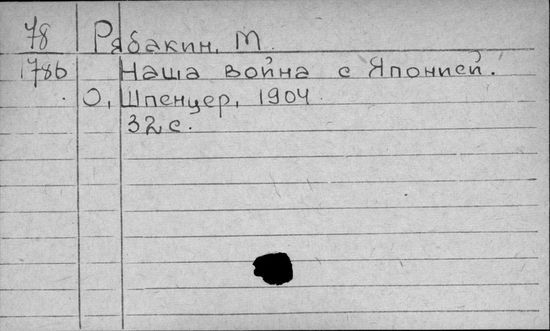 78 Рябакин, М.
1786 Наша война с Японией.
О, Шпенцер, 1904.
32 с.